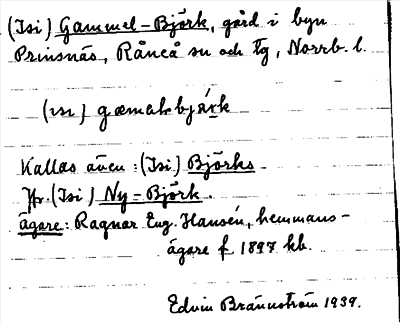 (Isi) Gammel-Björk, gård i byn
Prinsnäs, Råneå sn och tg, Norrb. l.
(ısı) gæmaľ bjä́rk
Kallas även: (Isi) Björks
Jfr (Isi) Ny-Björk.
ägare: Ragnar Eug. Hansén, hemmans-
ägare f. 1897 hb.
Edvin Brännström 1939.